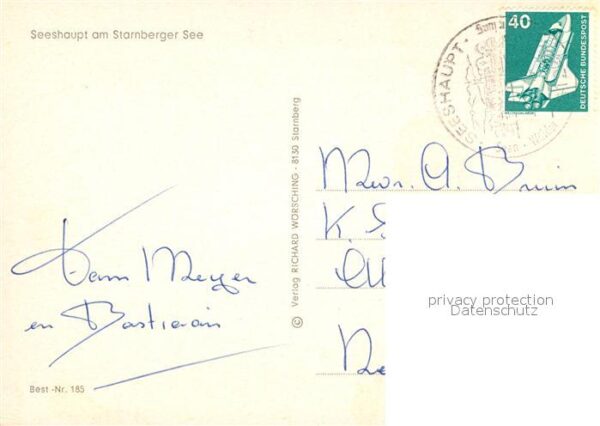 Seeshaupt am Starnberger See
40
DEUTSCHE BUNDESPOST
SEESHAUPT
© Verlag RICHARD WÖRSCHING · 8130 Starnberg
Mevr. A. Bruin
K.
Meyer
en Bastiaan
privacy protection
Datenschutz
Best.-Nr. 185